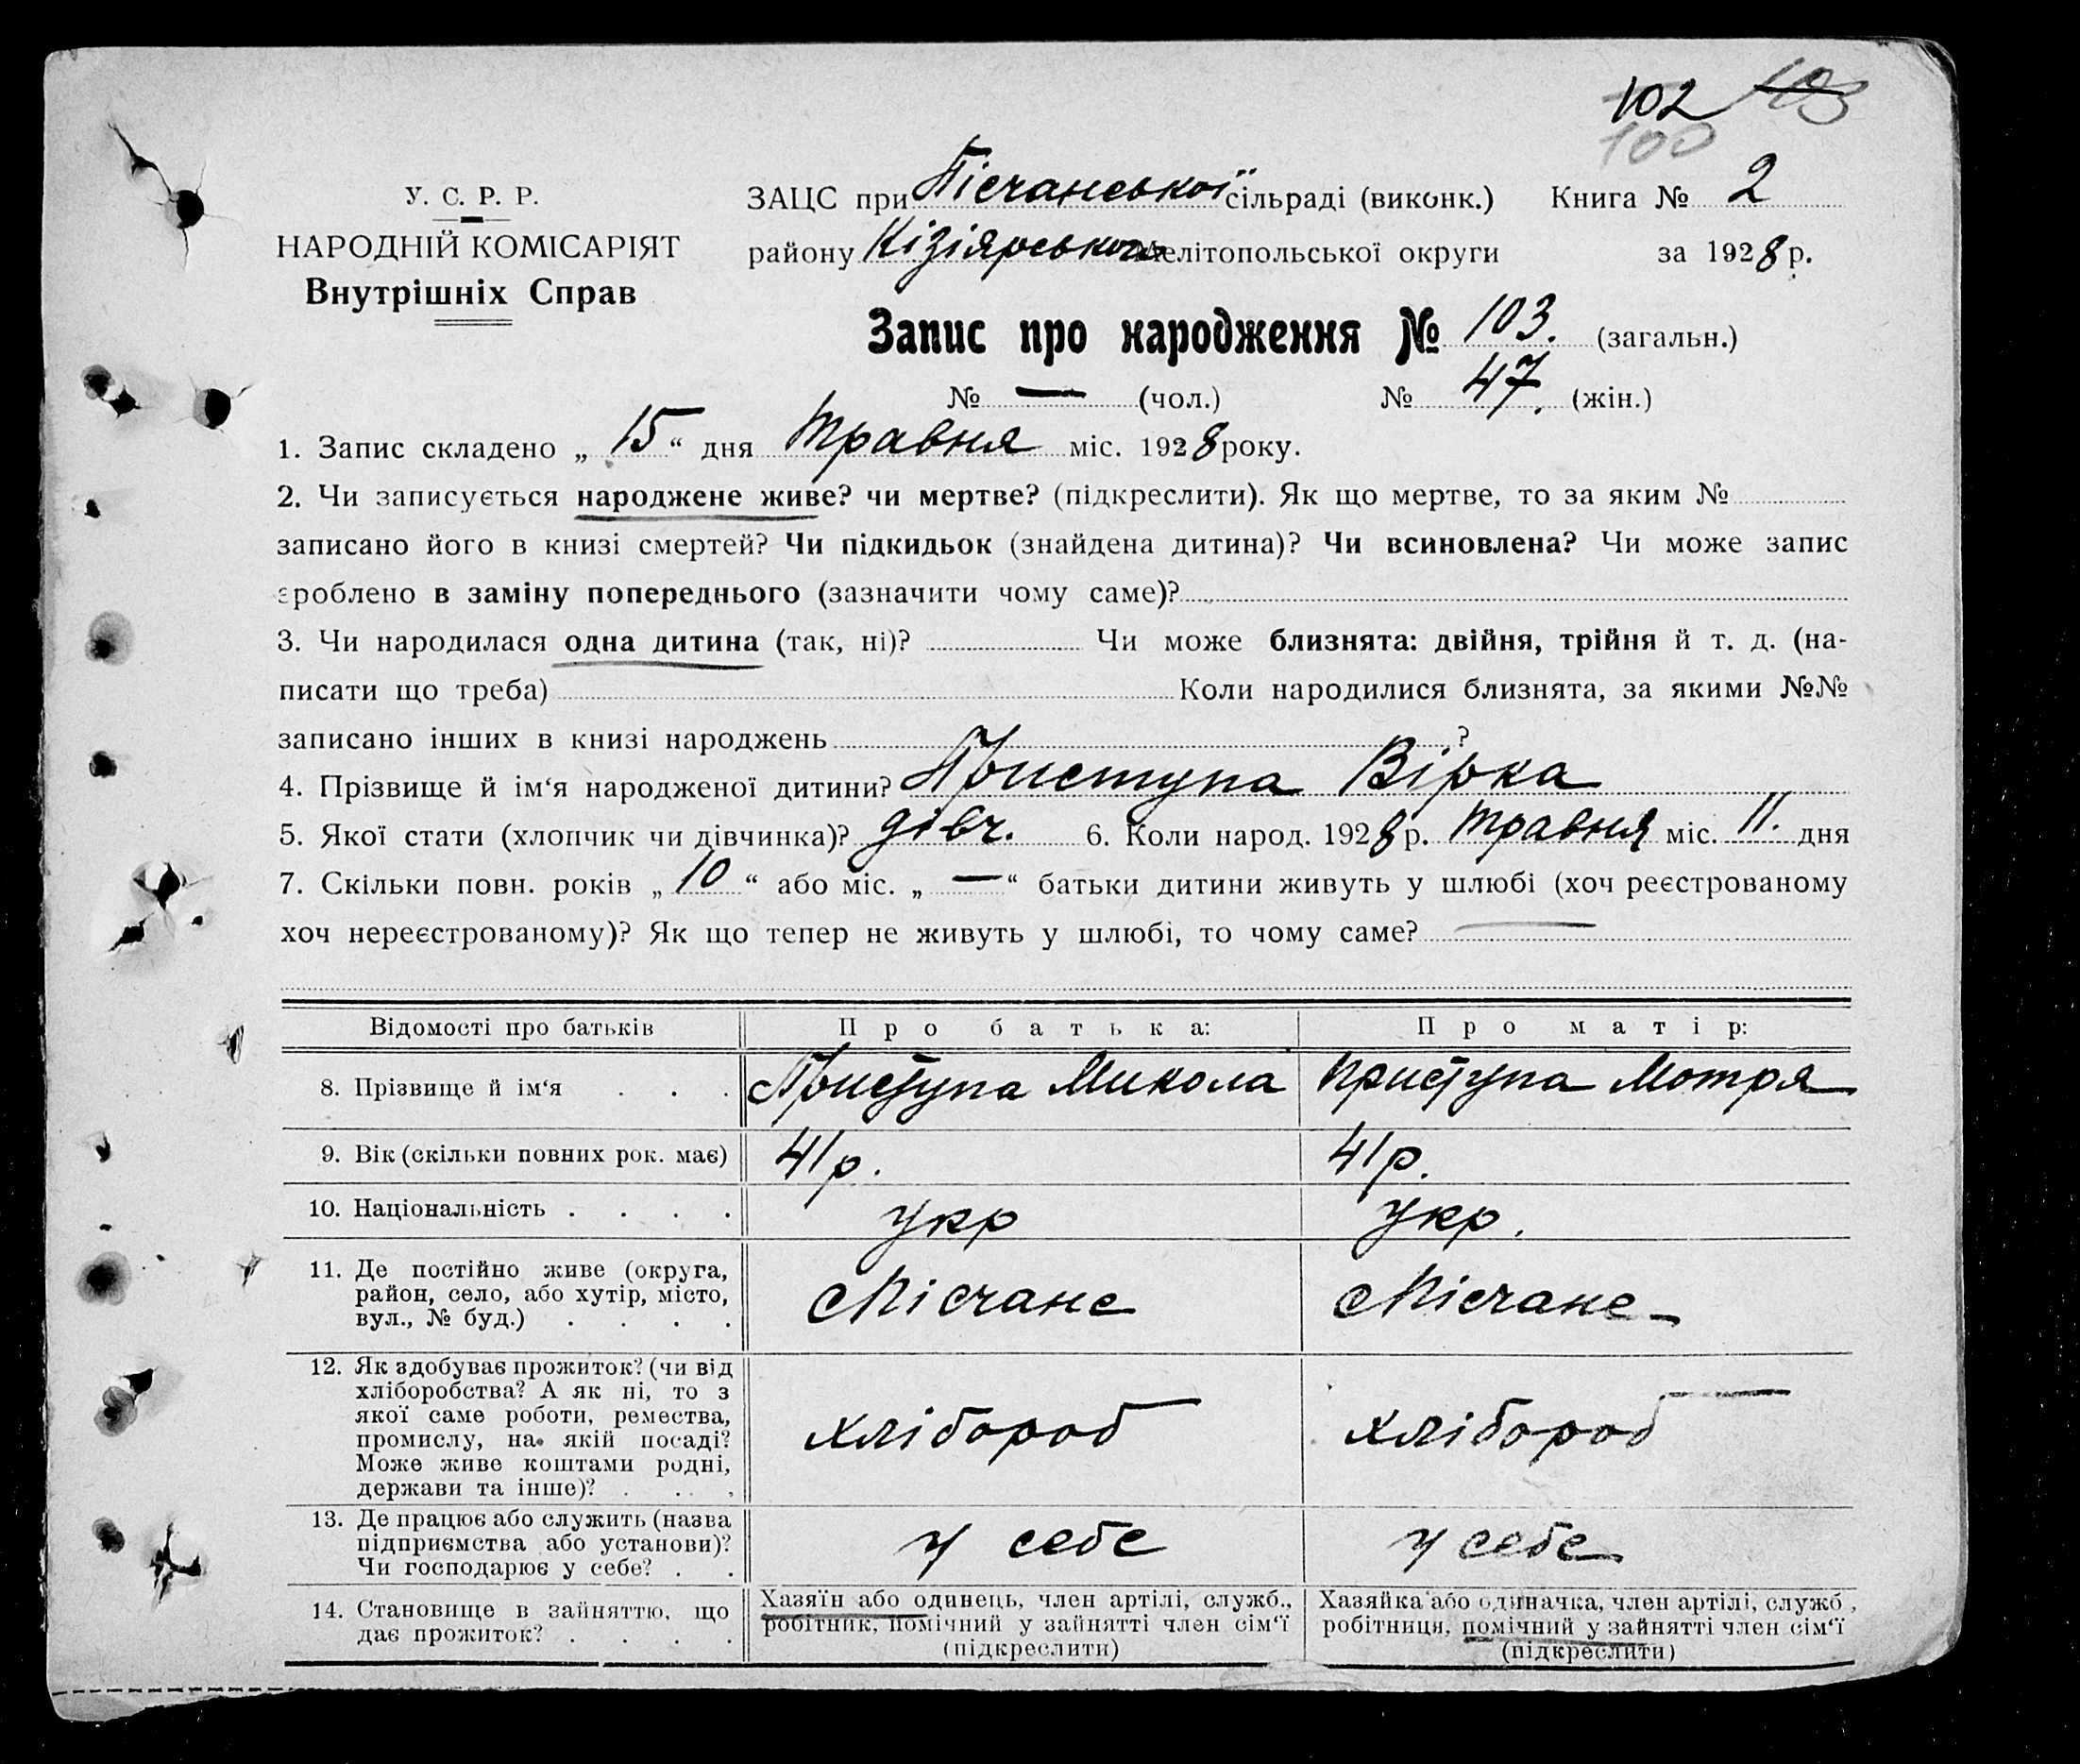 102 103
100
У. С. Р. Р.
НАРОДНІЙ КОМІСАРІЯТ
Внутрішніх Справ
ЗАЦС при Пісчанської сільраді (виконк.) Книга № 2
району Кізіярського Мелітопольської округи за 1928 р.
Запис про народження № 103. (загальн.)
№ — (чол.) № 47. (жін.)
1. Запис складено „ 15 “ дня травня міс. 1928 року.
2. Чи записується народжене живе? чи мертве? (підкреслити). Як що мертве, то за яким №
записано його в книзі смертей? Чи підкидьок (знайдена дитина)? Чи всиновлена? Чи може запис
зроблено в заміну попереднього (зазначити чому саме)?
3. Чи народилася одна дитина (так, ні)? Чи може близнята: двійня, трійня й т. д. (на-
писати що треба) Коли народилися близнята, за якими №№
записано інших в книзі народжень ?
4. Прізвище й ім‘я народженої дитини? Приступа Вірка
5. Якої стати (хлопчик чи дівчинка)? дівч. 6. Коли народ. 1928 р. травня міс. 11. дня
7. Скільки повн. років „ 10 “ або міс. „ — “ батьки дитини живуть у шлюбі (хоч реєстрованому
хоч нереєстрованому)? Як що тепер не живуть у шлюбі, то чому саме? —
Відомості про батьків Про батька: Про матір:
8. Прізвище й ім‘я . . . Приступа Микола Приступа Мотря
9. Вік (скільки повних рок. має) 41 р. 41 р.
10. Національність . . . . . укр укр.
11. Де постійно живе (округа,
район, село, або хутір, місто,
вул., № буд.) . . . .
Пісчане Пісчане
12. Як здобуває прожиток? (чи від
хліборобства? А як ні, то з
якої саме роботи, ремества,
промислу, на якій посаді?
Може живе коштами родні,
держави та інше)? . . . .
хлібороб хлібороб
13. Де працює або служить (назва
підприємства або установи)?
Чи господарює у себе? . .
у себе у себе
14. Становище в зайняттю, що
дає прожиток? . . . .
Хазяїн або одинець, член артілі, служб.,
робітник, помічний у зайнятті член сім‘ї
(підкреслити)
Хазяйка або одиначка, член артілі, служб.,
робітниця, помічний у зайнятті член сім‘ї
(підкреслити)